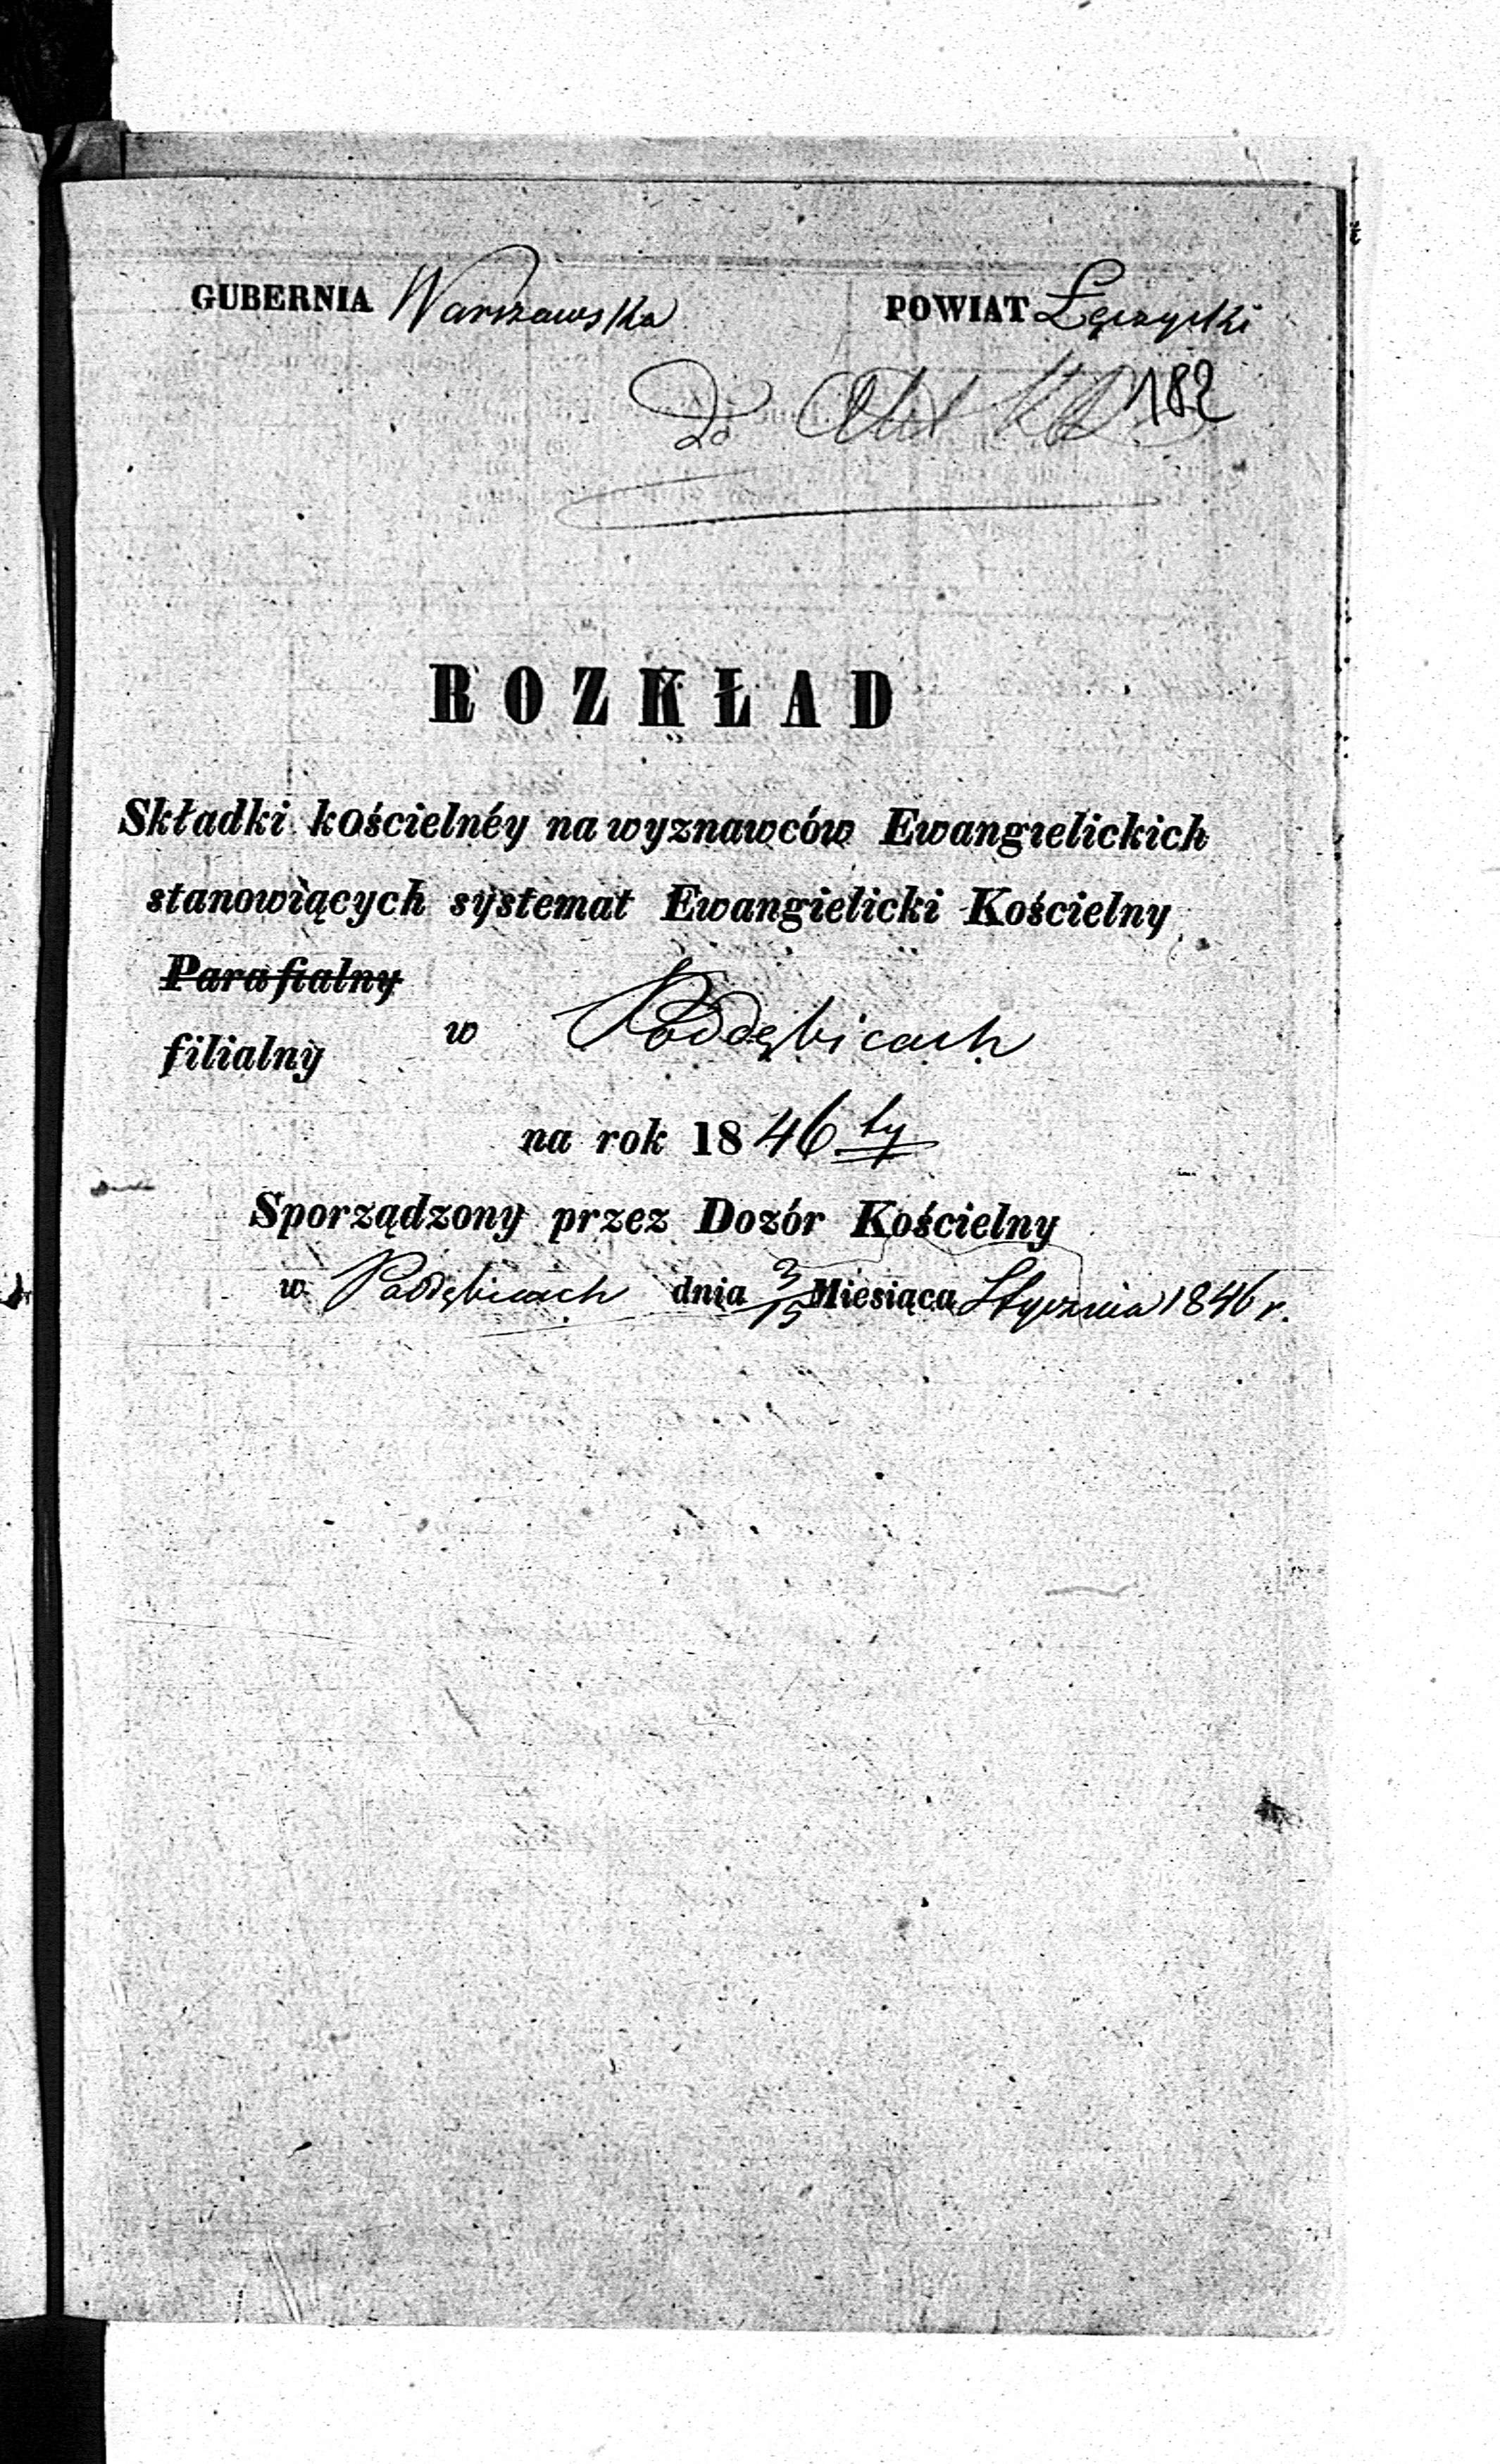 GUBERNIA Warszawska POWIAT Łęczycki
Do Akt 182
ROZKŁAD
Składki kościelnéy na wyznawców Ewangielickich
stanowiących systemat Ewangielicki Kościelny
Parafialny
filialny w Poddębicach
na rok 1846 ty
Sporządzony przez Dozór Kościelny
w Poddębicach dnia 3/15 Miesiąca Stycznia 1846 r.